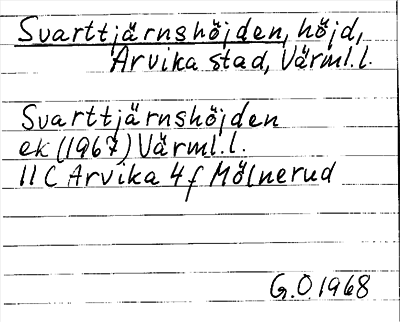 Svarttjärnshöjden, höjd,
Arvika stad, Värml.l.
Svarttjärnshöjden
ek (1967) Värml.l.
11 C Arvika 4 f Mölnerud
G.O. 1968